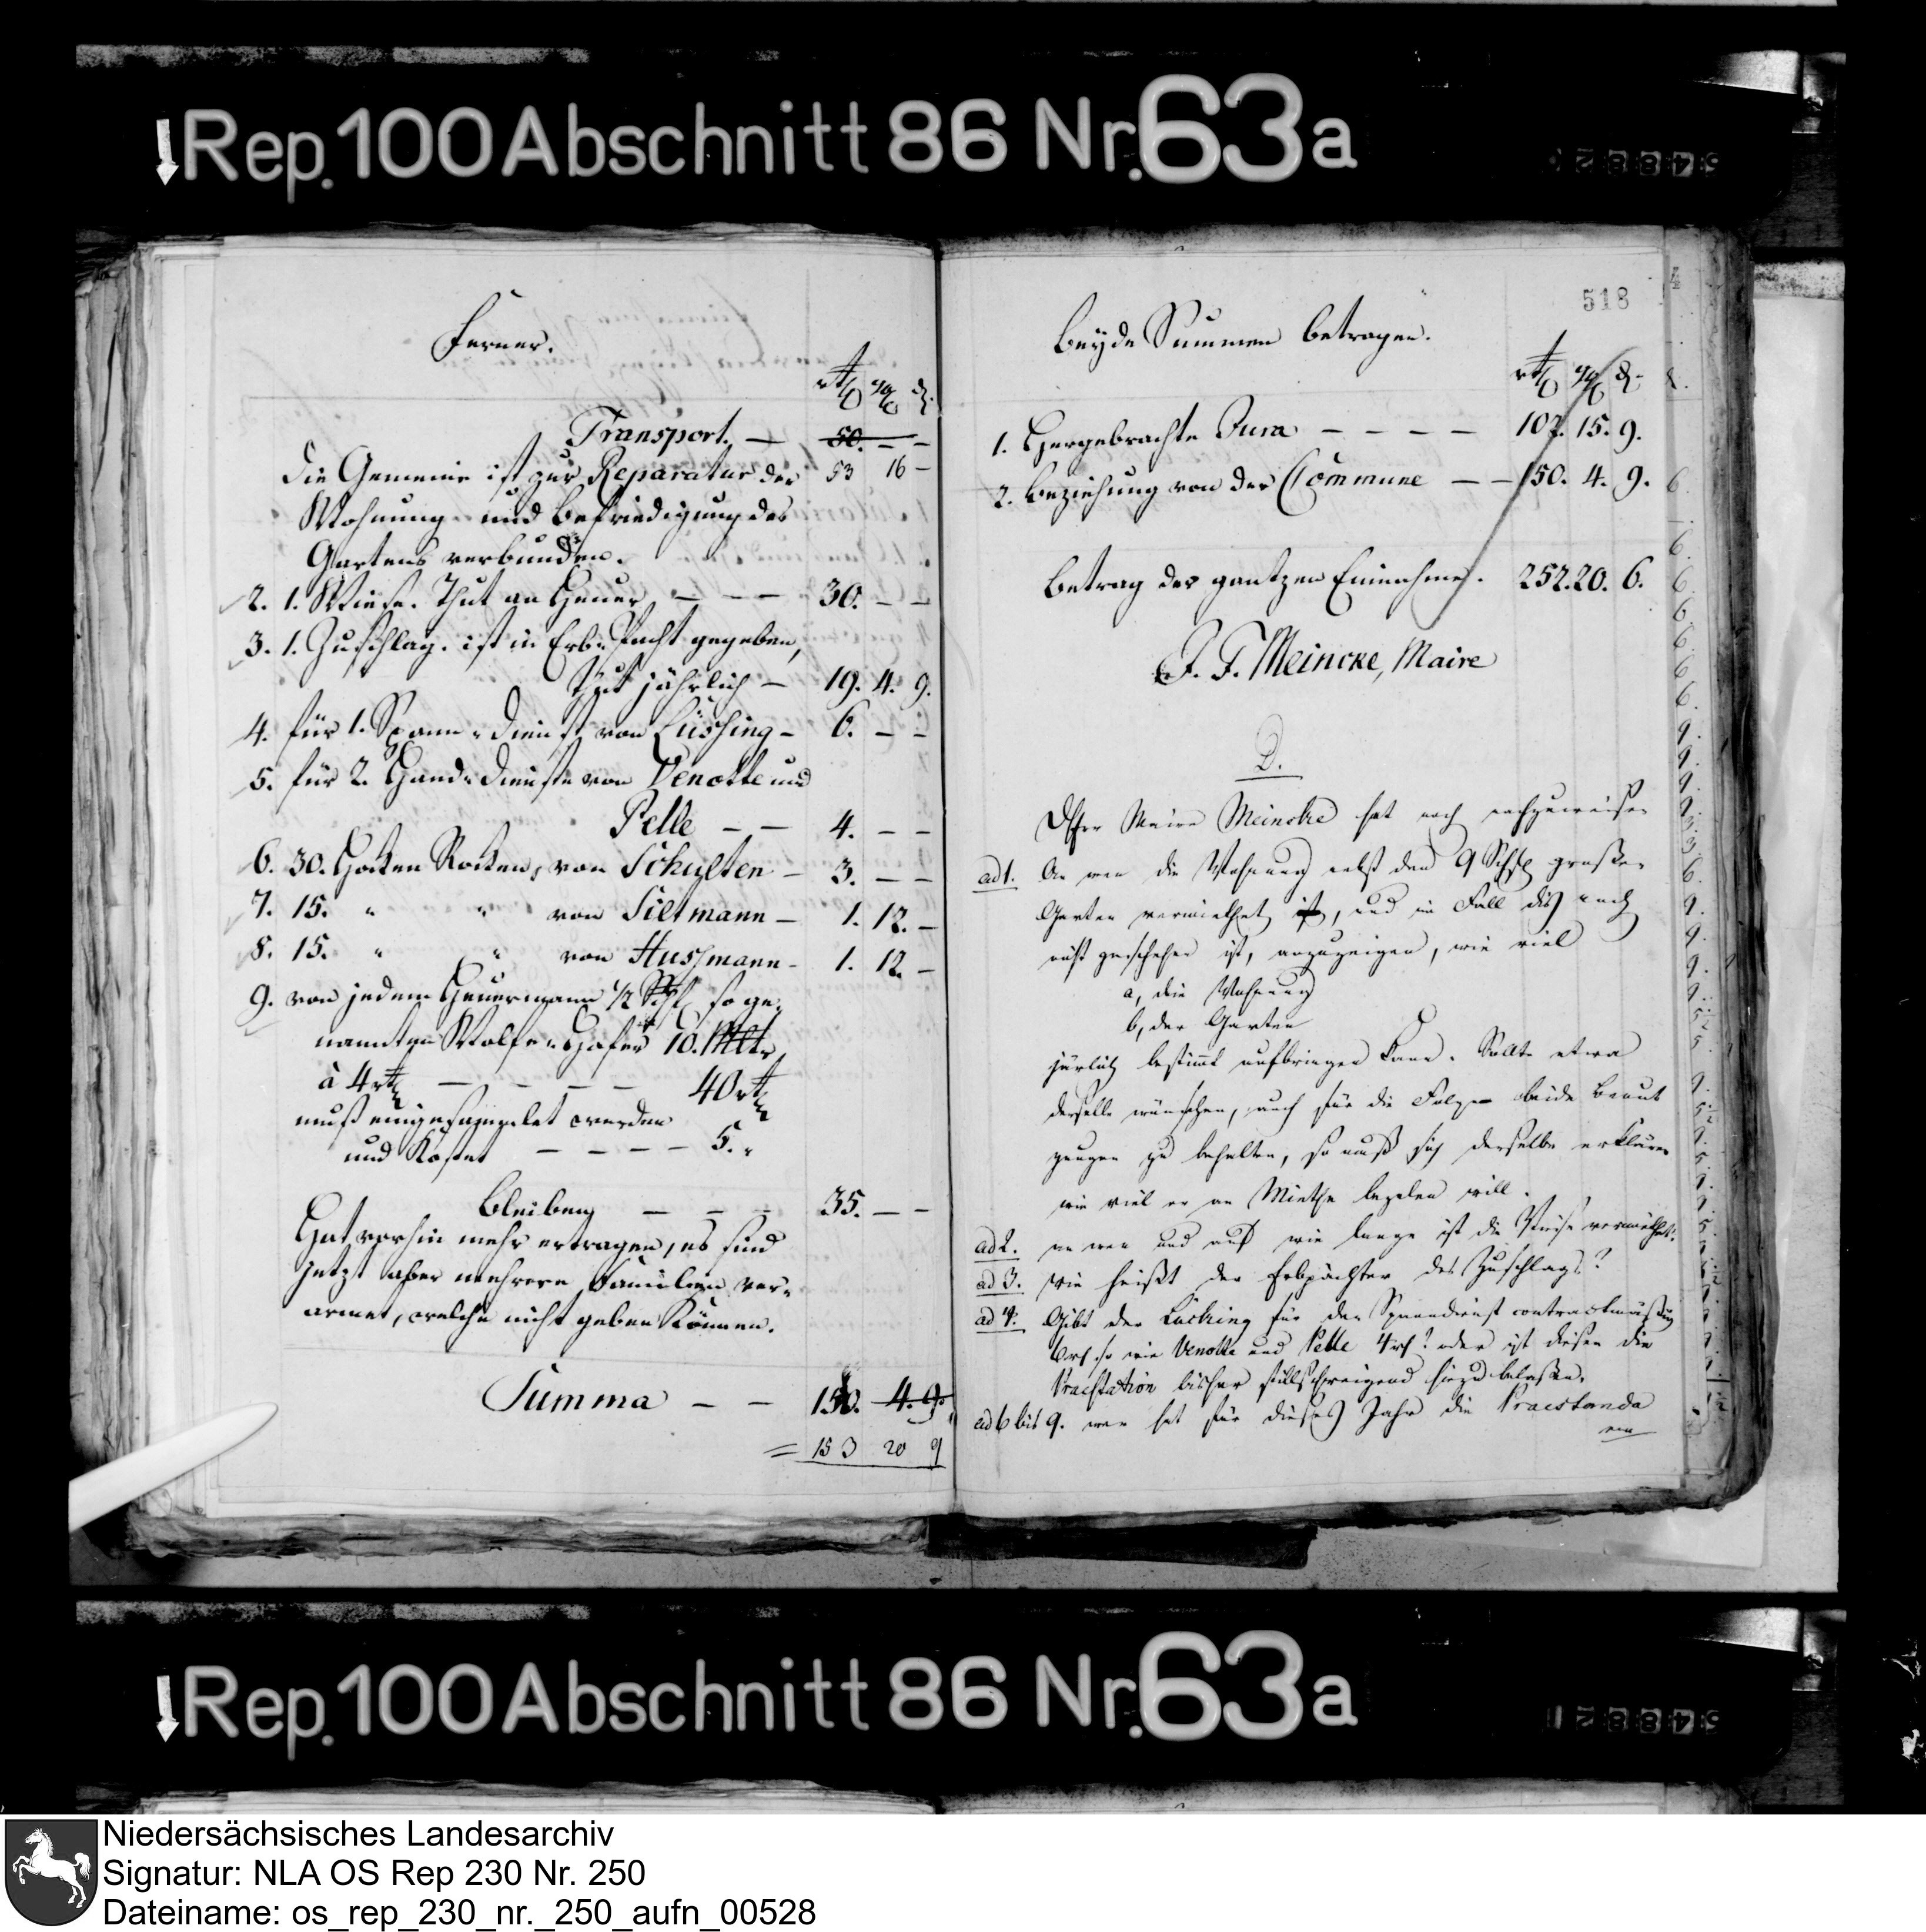 Rep. 100 Abschnitt 86 Nr. 63a
Ferner.
Transport. — 50. — —
die Gemeine ist zur Reparatur der 53 16 —
Wohnung und Befriedigung des
Gartens verbunden.
2. 1. Wiese. Thut an Heuer — — — 30. — —
3. 1. Zuschlag. ist in Erb-Pacht gegeben,
Thut jährlich — 19. 4. 9.
4. für 1. Spann-Dienst von Lüssing — 6. — —
5. für 2. Hand-Dienste von Venotte und
Pelle — — 4. — —
6. 30. Hocken Rocken, von Schulten — 3. — —
7. 15. " " von Siltmann — 1. 12. —
8. 15. " " von Hussmann — 1. 12. —
9. von jedem Heuermann 1/2 Schfl so ge-
nannten Wolfe-Hafer 10. Mltr
à 4 rt — — — — 40 rt
muß eingesammlet werden
und Kostet — — — — 5. "
bleiben — — — 35. — —
Hat vorhin mehr ertragen, es sind
jetzt aber mehrere Familien ver-
armet, welche nicht geben Können.
Summa — — 150. 4. 9.
= 153 20 9
518
Beyde Summen betragen.
1. Hergebrachte Jura — — — — 102. 15. 9.
2. Beziehung von der Commune — — 150. 4. 9.
Betrag der gantzen Einnahme. 252. 20. 6.
J. F. Meincke, Maire
D.
Maire Meincke hat noch nachzuweisen
ad 1. An wen die Wohnung nebst den 9 Schfl großen
Garten vermiethet ist, und im Fall dis noch
nicht geschehen ist, anzuzeigen, wie viel
a, die Wohnung
b, der Garten
järlich bestimmt aufbringen kann. Sollte etwa
derselbe wünschen, auch für die Folge beide
zu behalten, so muß sich derselbe erklären
wie viel er an Miethe bezalen will.
ad 2. an wen und auf wie lange ist die Wiese vermiethet.
ad 3. Wie heißt der Erbpächter des Zuschlags?
ad 4. Gibt der Lüssing für den Spanndienst contractmäßig
6 rt. so wie Venotte und Pelle 4 rt? oder ist diesen die
Praestation bisher stillschweigend hiezu belaßen.
ad 6 bis 9. wer hat für dieses Jahr die Praestanda
Rep. 100 Abschnitt 86 Nr. 63a
Niedersächsisches Landesarchiv
Signatur: NLA OS Rep 230 Nr. 250
Dateiname: os_rep_230_nr._250_aufn_00528